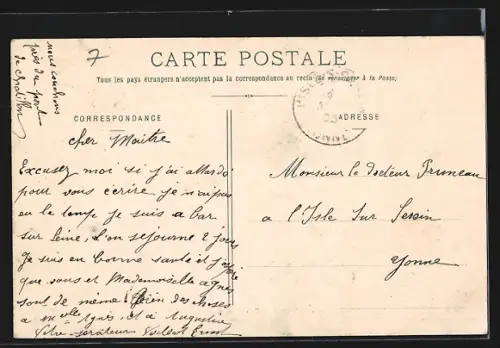 7
CARTE POSTALE
Tous les pays étrangers n'acceptent pas la correspondance au recto (Se renseigner à la Poste)
CORRESPONDANCE
ADRESSE
nous couchons
près du pont
de chatillon
cher Maitre
Excusez moi si j'ai attardé
pour vous écrire je n'ai pas
eu le temps je suis a bar
sur Seine, l'on séjourne 2 jours
Je suis en bonne santé et j'
que vous et Mademoiselle agnes
sont de meme bien des choses
a Melle Agnès, et à Augustine
Votre serviteur
Monsieur le docteur Pruneau
a l'Isle sur Serein
Yonne